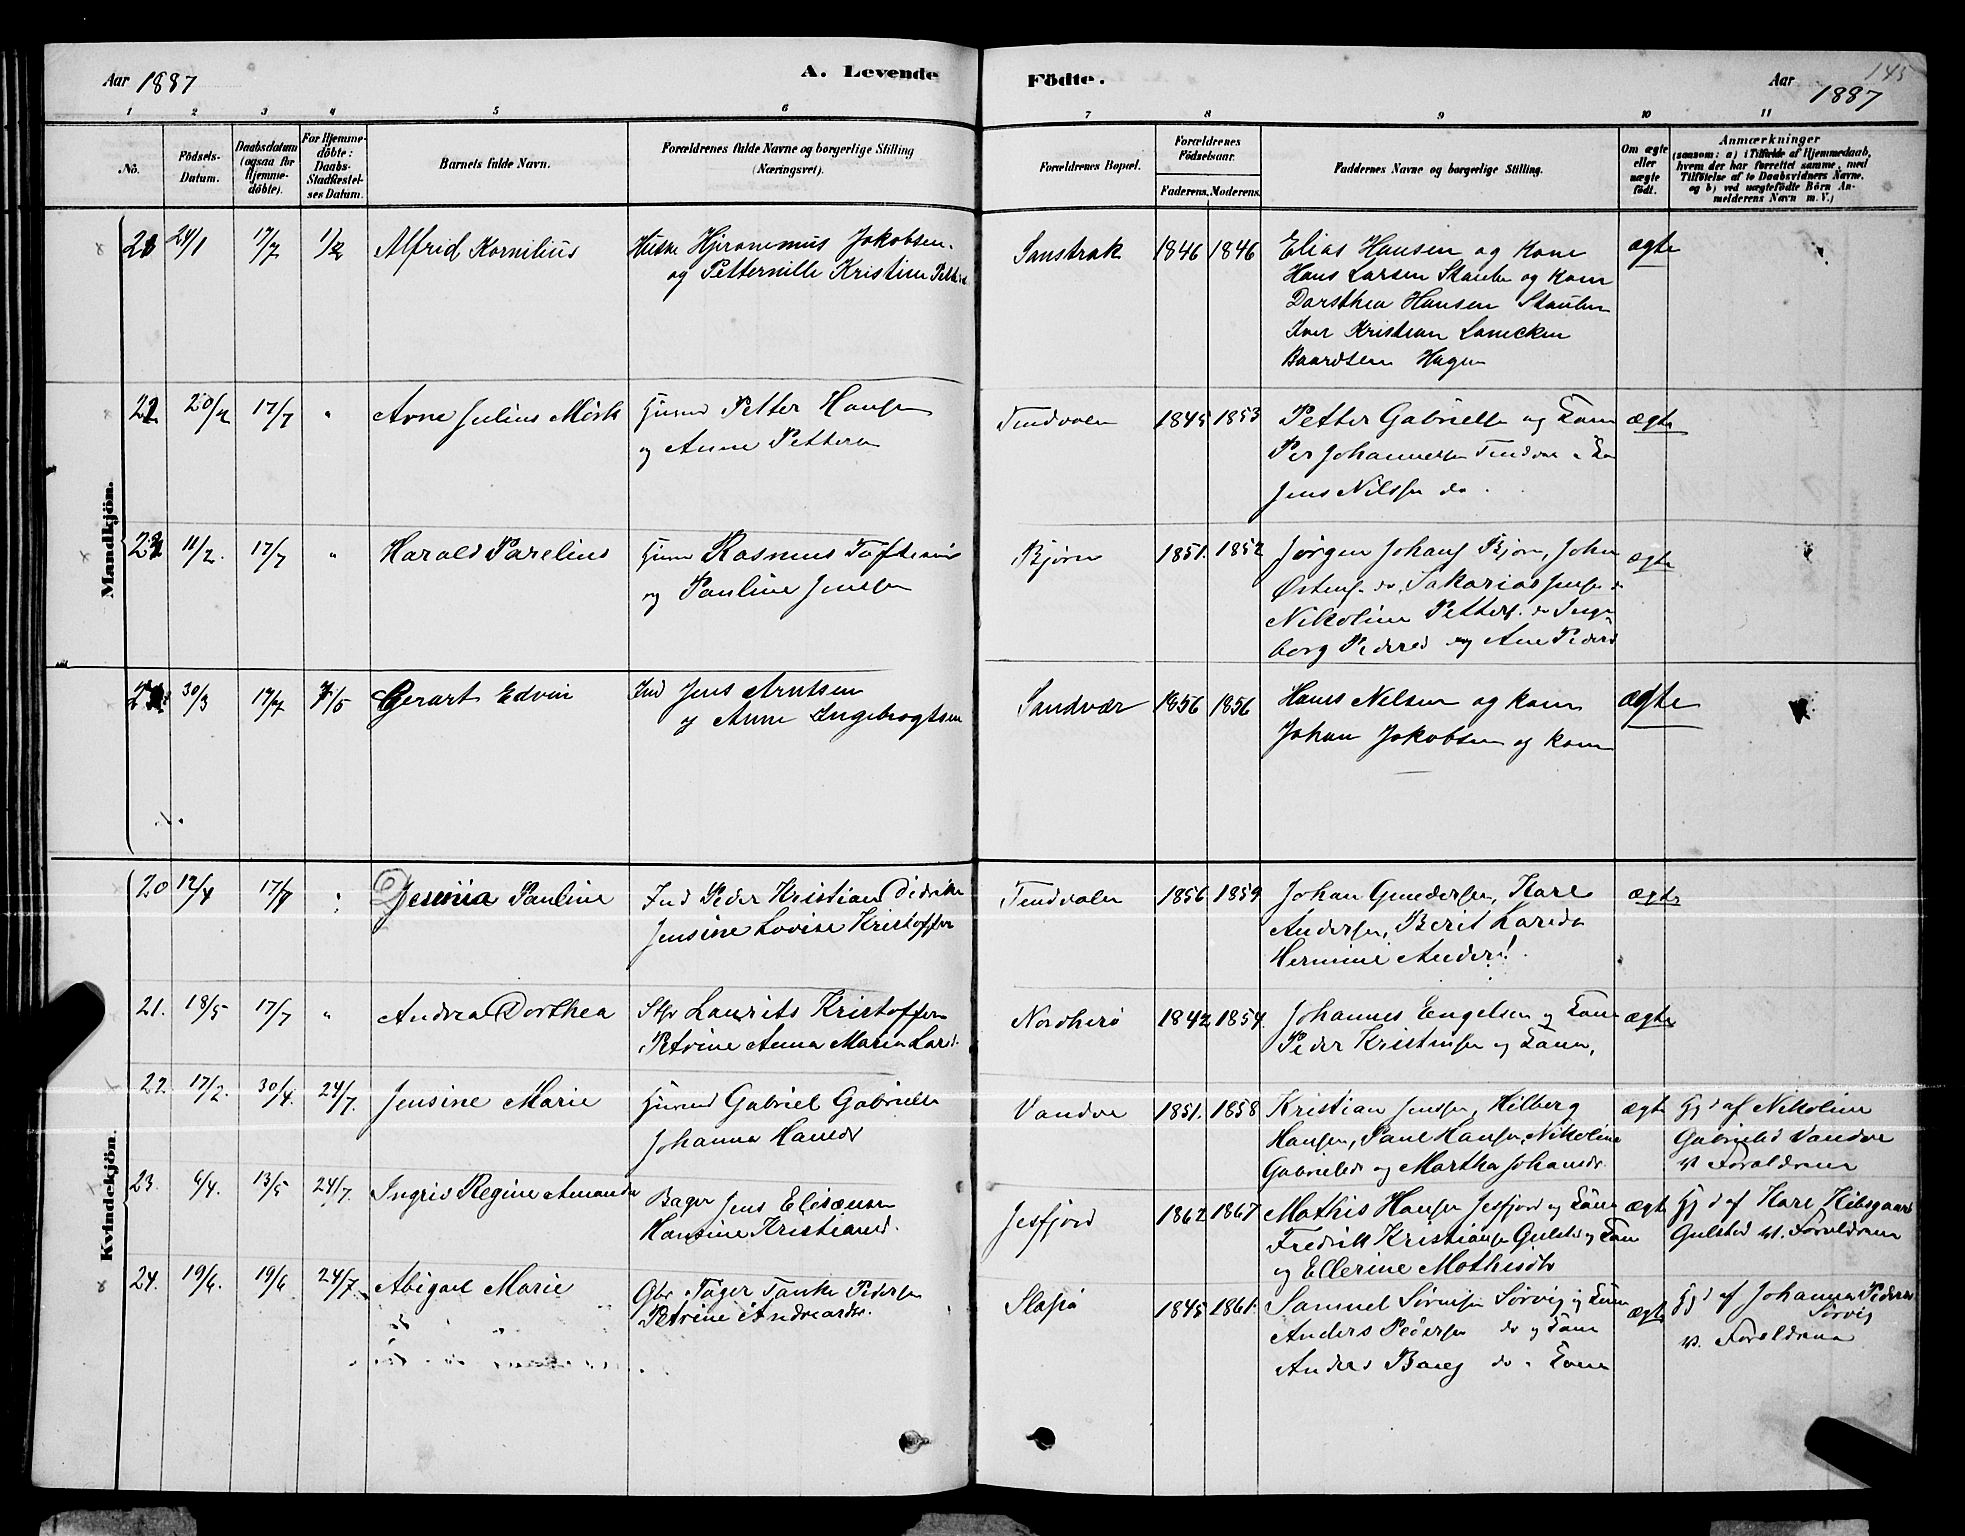 Aar 1887
A. Levende
Födte.
Aar 1887
145
1 2 3 4 5 6 7 8 9 10 11
No.
Födsels-Datum.
Daabsdatum (ogsaa for Hjemme-döbte).
For Hjemme-döbte: Daabs-Stadfæstel-ses Datum.
Barnets fulde Navn.
Forældrenes fulde Navne og borgerlige Stilling (Næringsvei).
Forældrenes Bopæl.
Forældrenes Födselsaar.
Faderens. Moderens.
Faddernes Navne og borgerlige Stilling.
Om ægte eller uægte födt.
Anmærkninger
(saasom: a) i Tilfælde af Hjemmedaab,
hvem der har forrettet samme, med
Tilföielse af to Daabsvidners Navne,
og b) ved uægtefödte Börn An-
melderens Navn m. V.)
Mandkjön.
24/1 17/7 Alfrid Kornilius
Hjeronimus Jakobsen
og Petternille Kristine
Sanstrak 1846 1846
Elias Hansen og Kone
Hans Larsen Staulen og Kone
Dorsthea Hansen Staulen
Iver Kristian Lanecken
Baardsen Hagen
ægte
20/2 17/7 " Arne Julius Mörk
Petter Hansen
og Anne Pettersen
Tindvalen 1845 1853
Petter Gabrielse og Kone
Per Johannesen Tindva
Jens Nilssen do.
ægte
11/2. 17/7 " Harald Parelius
Rasmus Toftesen
og Pauline Jensen
Bjørn 1851. 1852
Jørgen Johans Bjørn, John
Østens. do, Sakarias Jense
Nikoline Petters. do Inge
borg Pedersd og Ane Pedersd
ægte
30/3 17/7 7/5 Gerart Edvin
Ind Jens Arntsen
og Anne Ingebrogtsen
Sandvær 1856 1856
Hans Nilsen og kone
Johan Jakobsen og kone
ægte
Kvindekjön.
20 12/4 17/7 Jesinia Pauline
Ind Peder Kristian Didrik
Jensine Lovise Kristoffer
Tindvalen 1856 1859
Johan Gundersen, Kare
Andersen, Berit Larsda
Hermine Anders!
ægte
21. 18/5 17/7 " Andrea Dorthea
Laurits Kristoffersen
Petrine Anna Maria Lars
Nordherö 1842 1854
Johannes Engelsen og Kone
Peder Kristensen og Kone,
ægte
22. 17/2. 30/4. 24/7. Jensine Marie
Gabriel Gabrielse
Johanna Hansdr
Vandve 1851. 1858
Kristian Jenssen, Hilberg
Hansen, Paul Hansen, Nikoline
Gabrielsdr og Martha Johansdr.
ægte
Hj d af Nikoline
Gabrielsd Vandve
v. Forældrene
23. 6/4. 13/5 24/7. Ingris Regine Amanda
Bager Jens Elisæusen
Hansine Kristiansd.
Jesfjord 1862 1867
Mathis Hansen Jesfjord og Kone
Fredrik Kristiansen Gulsted og Kone
og Ellerine Mathisdtr
ægte
Hj d af Kare Kibsgaard
Gulsted v. Forældrene
24. 19/6. 19/6 24/7. Abigael Marie
Gbr. Tøger Tanke Pedersen
Petrine Andreasdr.
Slapö 1845 1861
Samuel Sörensen Sörvig og Kone
Anders Pedersen do og Kone
Anders Bang do " Kone
ægte
Hj d af Johanna Pedersd
Sørvig
v. Forældrene